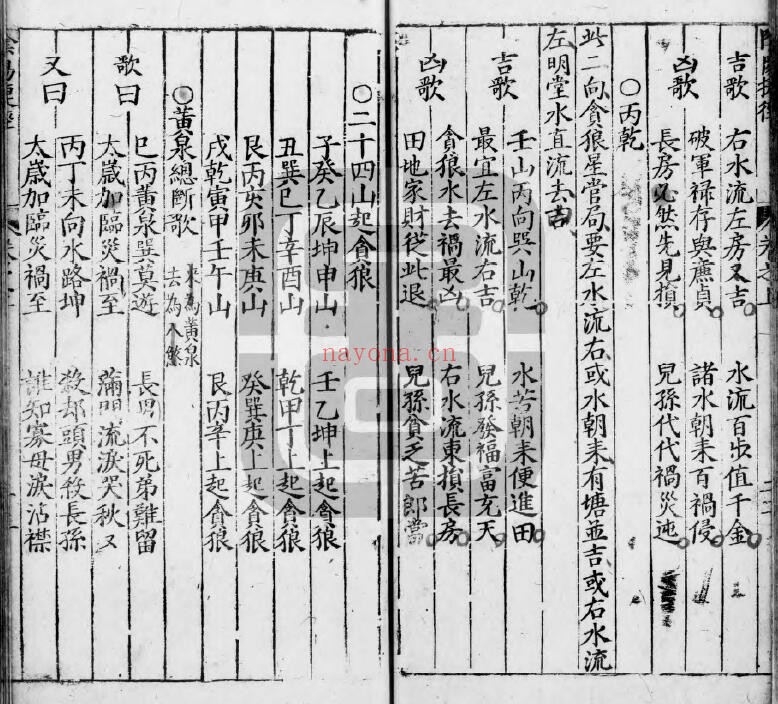 吉歌 右水流左房又吉 水流百步值千金
凶歌 破軍禄存與廉貞 諸水朝來百禍侵
長房必然先見損 兒孫代代禍災迍
○丙乾
此二向貪狼星當局要左水流右或水朝來有塘並吉或右水流
左明堂水直流去吉
吉歌 壬山丙向巽山乾 水若朝來便進田
最宜左水流右吉 兒孫發福富充天
凶歌 貪狼水去禍最凶 右水流東損長房
田地家財從此退 兒孫貧乏苦郎當
○二十四山起貪狼
子癸乙辰坤申山 壬乙坤上起貪狼
丑巽巳丁辛酉山 乾甲丁上起貪狼
艮丙亥卯未庚山 癸巽庚上起貪狼
戌乾寅甲壬午山 艮丙辛上起貪狼
○黃泉總斷歌 來為黃泉去為八煞
歌曰 巳丙黃泉巽莫遊 長男不死弟難留
太歲加臨災禍至 滿門流淚哭秋又
又曰 丙丁未向水路坤 殺却頭男殺長孫
太歲加臨災禍至 誰知寡母淚沾襟
nayona.cn